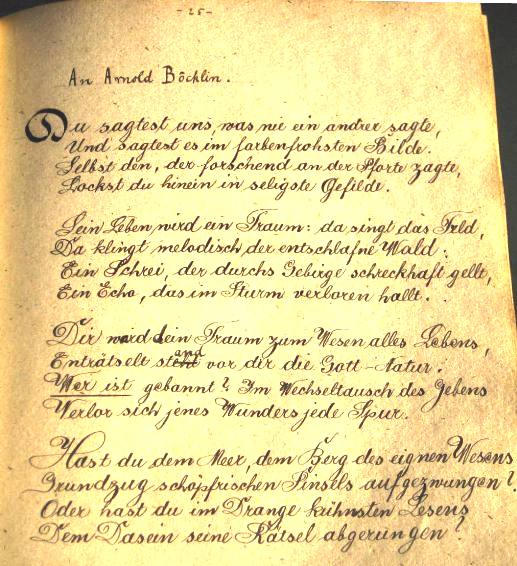 - 25 -
An Arnold Böcklin.
Du sagtest uns, was nie ein andrer sagte,
Und sagtest es im farbenfrohsten Bilde.
Selbst den, der forschend an der Pforte zagte,
Lockst du hinein in seligste Gefilde.
Sein Leben wird ein Traum: da singt das Feld,
Da klingt melodisch der entschlafne Wald:
Ein Schrei, der durchs Gebirge schreckhaft gellt,
Ein Echo, das im Sturm verloren hallt.
Dir ward dein Traum zum Wesen alles Lebens,
Enträtselt stand vor dir die Gott-Natur:
Wer ist gebannt? Im Wechseltausch des Gebens
Verlor sich jenes Wunders jede Spur.
Hast du dem Meer, dem Berg des eignen Wesens
Grundzug schöpfrischen Pinsels aufgezwungen?
Oder hast du im Drange kühnsten Lesens
Dem Dasein seine Rätsel abgerungen?